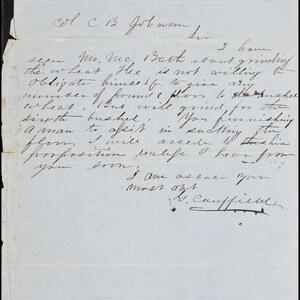 Col C B Johnson
Sir
I have
seen Mr. Mc Bath about grinding
the wheat Hee is not willing to
obligate himself to give any
number of pounds flour to bushel
wheat. But will grind for the
sixth bushel. You furnishing
a man to asist in sacking the
flour, I will accede to his
proposition unless I hear from
you soon.
I am as ever your
most obt
G. Cauffield